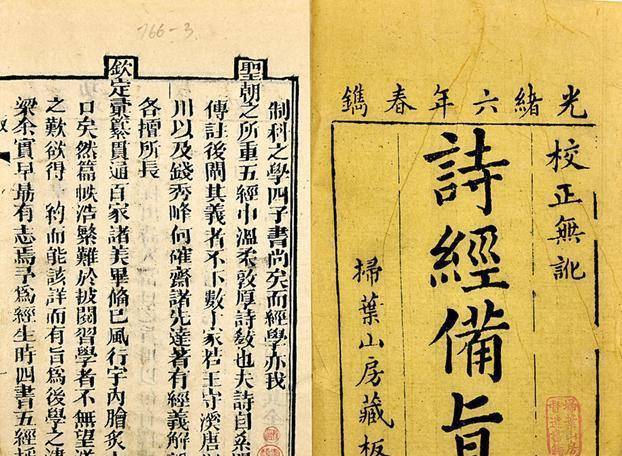 光緒六年春鐫
校正無訛
詩經備旨
掃葉山房藏板
制科之學四子書尚矣而經學亦我
聖朝之所重五經中溫柔敦厚詩教也夫詩自
傳註後闡其義者不下數十家若王守溪唐
川以及錢秀峰何確齋諸先達著有經義解
各擅所長
欽定彙纂貫通百家諸美畢備已風行宇內膾炙
口矣然篇帙浩繁難於披閱習學者不無望
之歎欲得 約而能該詳而有旨為後學之津
梁余實早最有志焉予為經生時四書五經
766-3